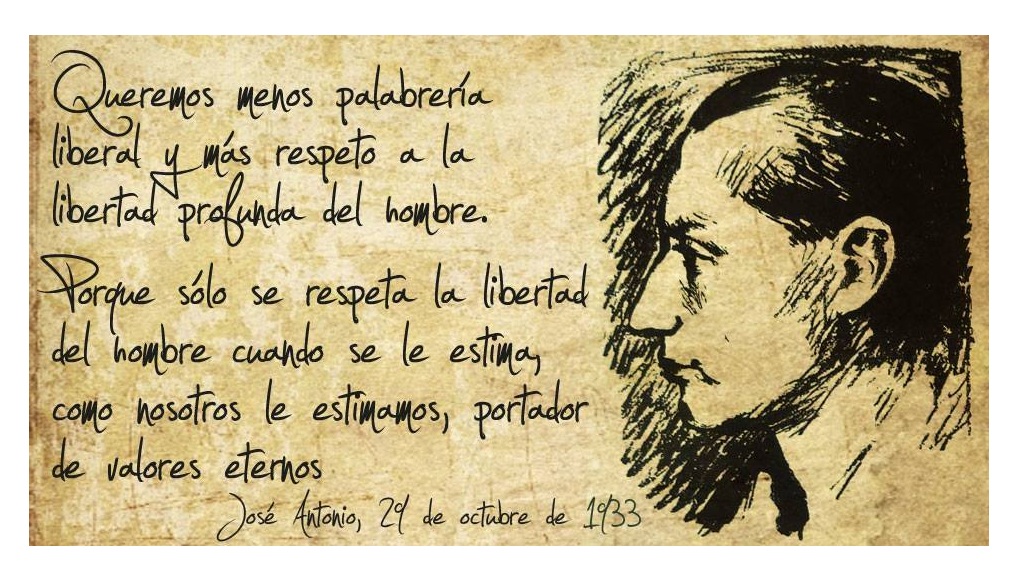 Queremos menos palabrería
liberal y más respeto a la
libertad profunda del hombre.
Porque sólo se respeta la libertad
del hombre cuando se le estima,
como nosotros le estimamos, portador
de valores eternos
José Antonio, 29 de octubre de 1933